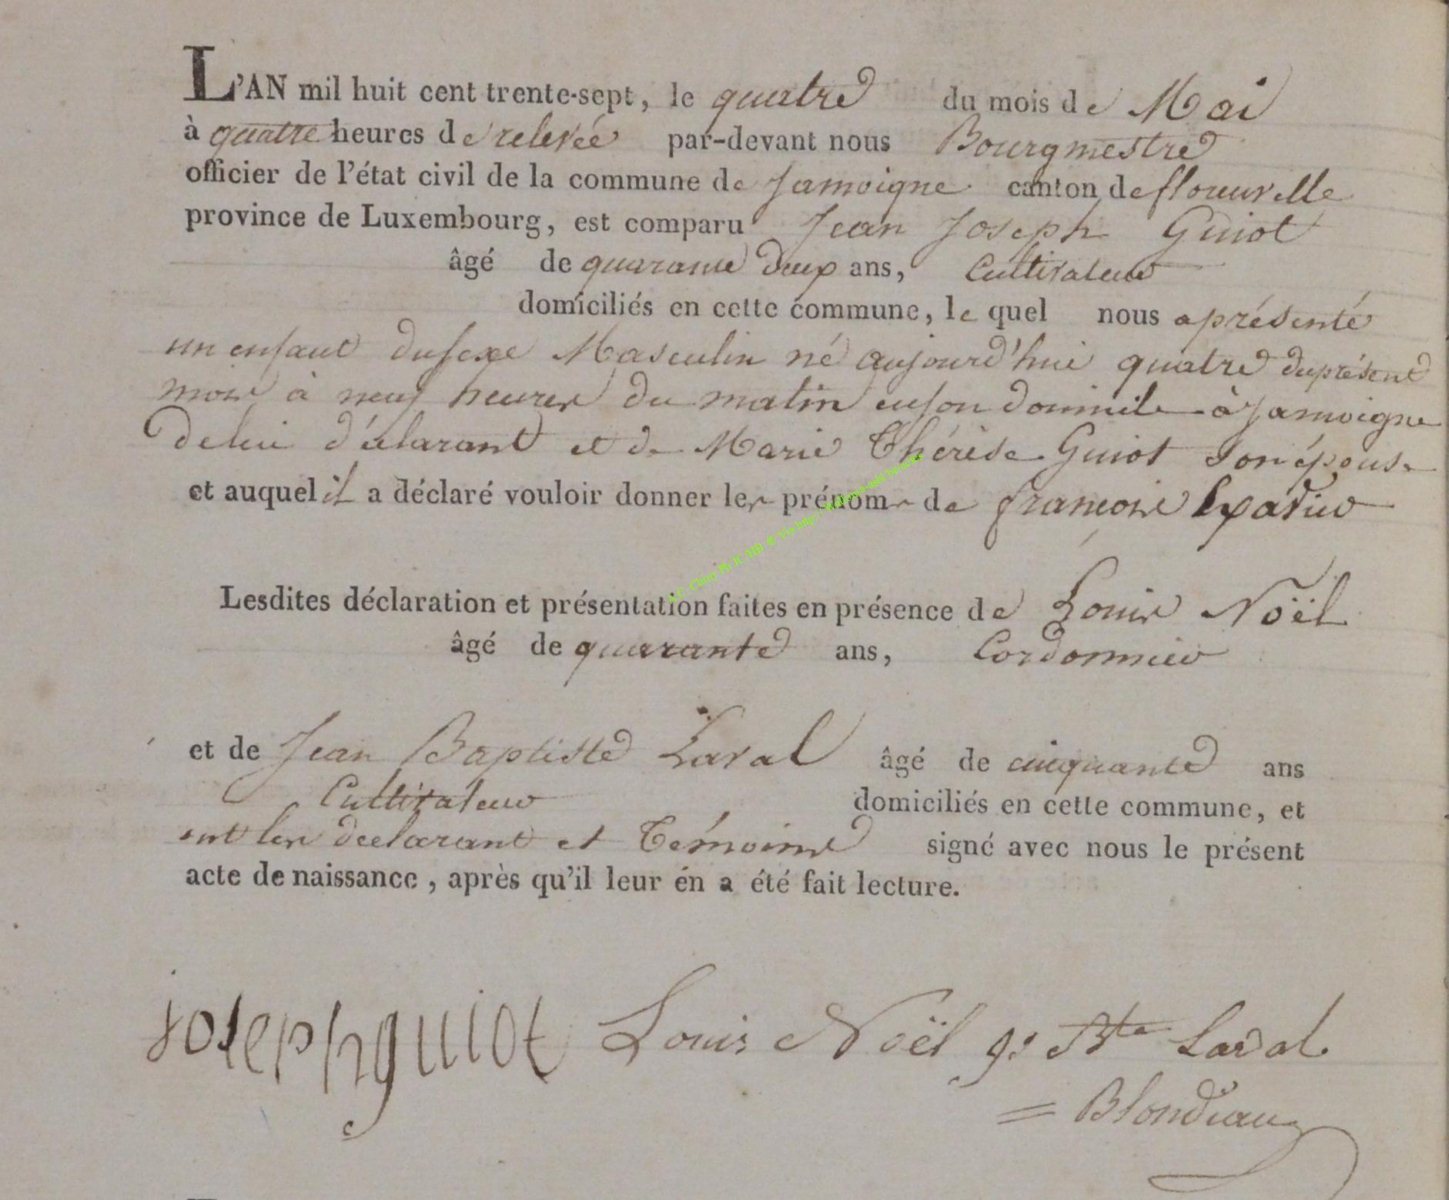 L'AN mil huit cent trente-sept, le quatre du mois de Mai
à quatre heures de relevée par-devant nous Bourgmestre
officier de l'état civil de la commune de Jamoigne canton de florenville
province de Luxembourg, est comparu Jean Joseph Guiot
âgé de quarante deux ans, Cultivateur
domiciliés en cette commune, le quel nous a présenté
un enfant du sexe Masculin né aujourd'hui quatre du présent
mois à neuf heures du matin en son domicile à Jamoigne
de lui déclarant et de Marie Thérèse Guiot son épouse
et auquel il a déclaré vouloir donner les prénoms de françois Xavier
Lesdites déclaration et présentation faites en présence de Louis Noël
âgé de quarante ans, Cordonnier
et de Jean Baptiste Laval âgé de cinquante ans
Cultivateur domiciliés en cette commune, et
ont les declarant et Témoins signé avec nous le présent
acte de naissance, après qu'il leur én a été fait lecture.
joseph guiot Louis Noël J. Bte Laval
= Blondiau